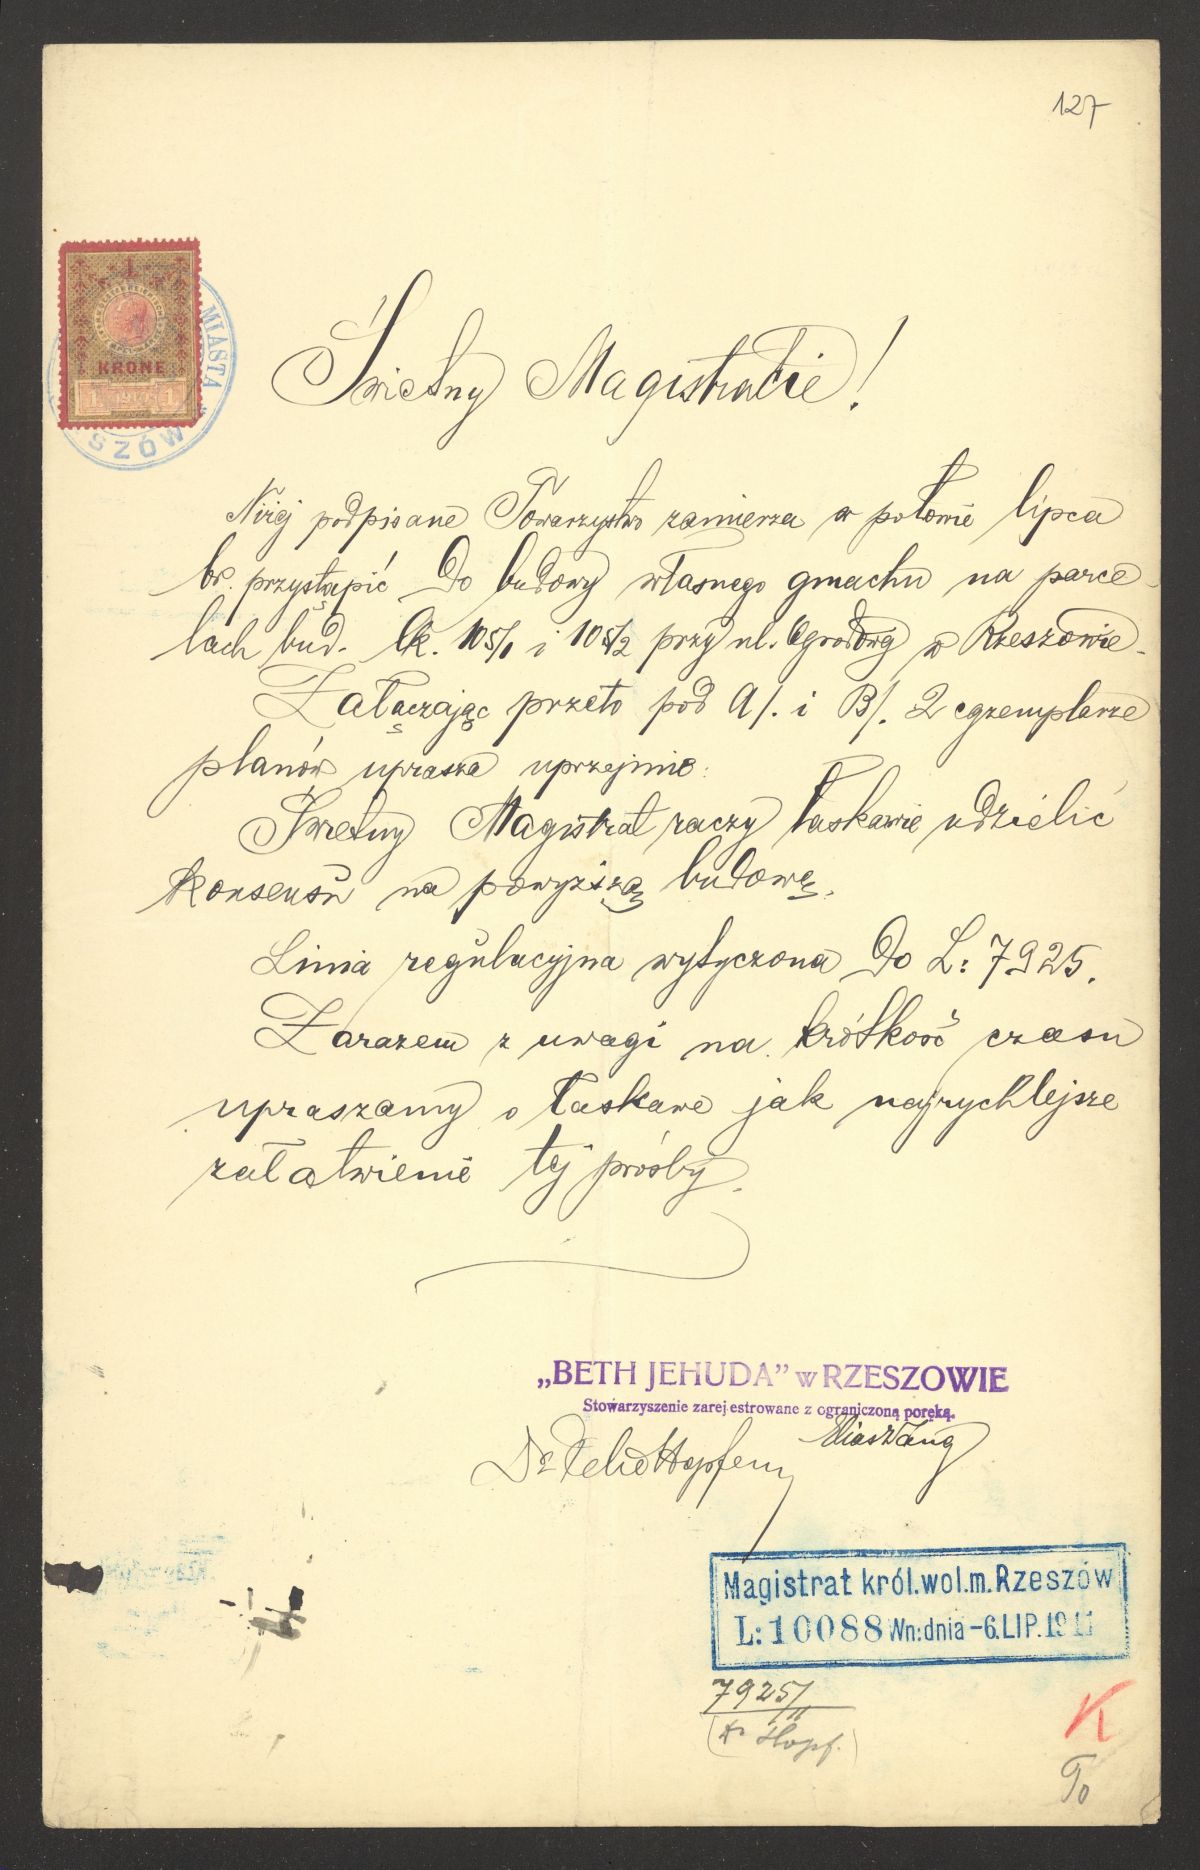 127
1
KRONE
1 1
MIASTA
SZÓW
Świetny Magistracie!
Niżej podpisane Towarzystwo zamierza w połowie lipca
br. przystąpić do budowy własnego gmachu na parce-
lach bud. lk. 105/1 i 105/2 przy ul. Ogrodowej w Rzeszowie.
Załączając przeto pod A/. i B/. 2 egzemplarze
planów uprasza uprzejmie:
Świetny Magistrat raczy łaskawie udzielić
konsensu na powyższą budowę.
Linia regulacyjna wytyczona do L: 7925.
Zarazem z uwagi na krótkość czasu
upraszamy o łaskawe jak najrychlejsze
załatwienie tej prośby.
„BETH JEHUDA" w RZESZOWIE
Stowarzyszenie zarejestrowane z ograniczoną poręką.
Dr Felix Hopfen
Magistrat król.wol.m.Rzeszów
L: 10088 Wn: dnia -6.LIP.1911
7925/11
(Dr Hopf.)
K